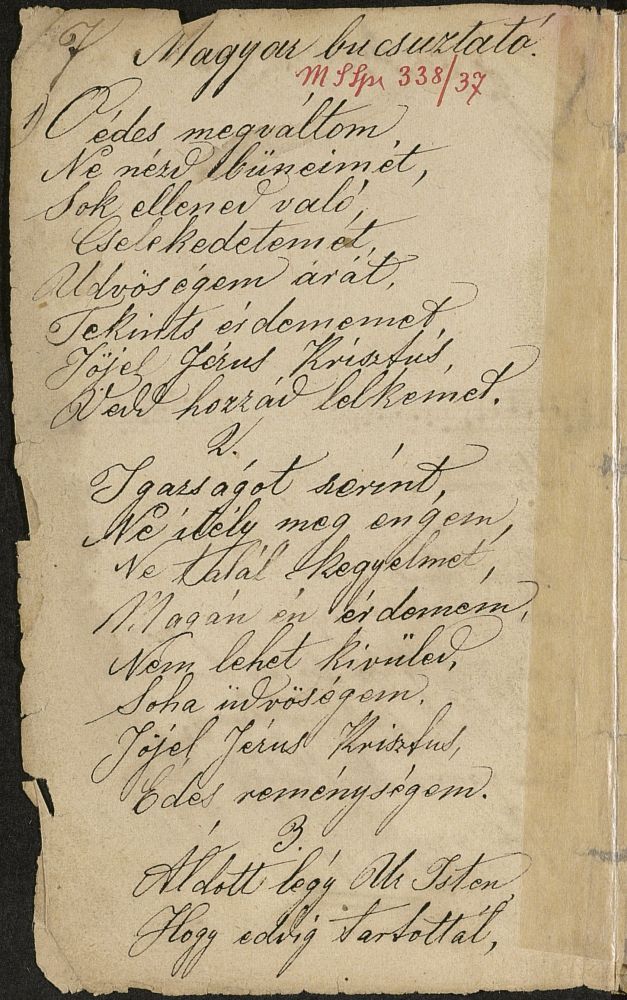 7 Magyar bucsuztató.
MSSpr 338/37
1) Oh édes megváltom,
Ne nézd büneimet,
Sok ellened való,
Cselekedetemet,
Udvöségem árát,
Tekints érdememet,
Jöjel Jézus Krisztus,
Vedd hozzád lelkemet.
2.
Igazságot szerint,
Ne itély meg engem,
Ne talál kegyelmet,
Magán én érdemem,
Nem lehet kivüled,
Soha üdvöségem.
Jöjel Jézus Krisztus,
Edes reménységem.
3.
Áldott légy Ur Isten,
Hogy edvig tartottál,